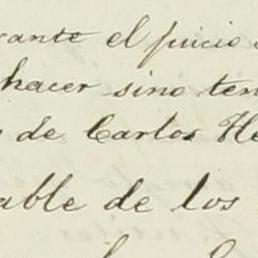 rante el juicio
hacer sino ten
de Carlos He
able de los